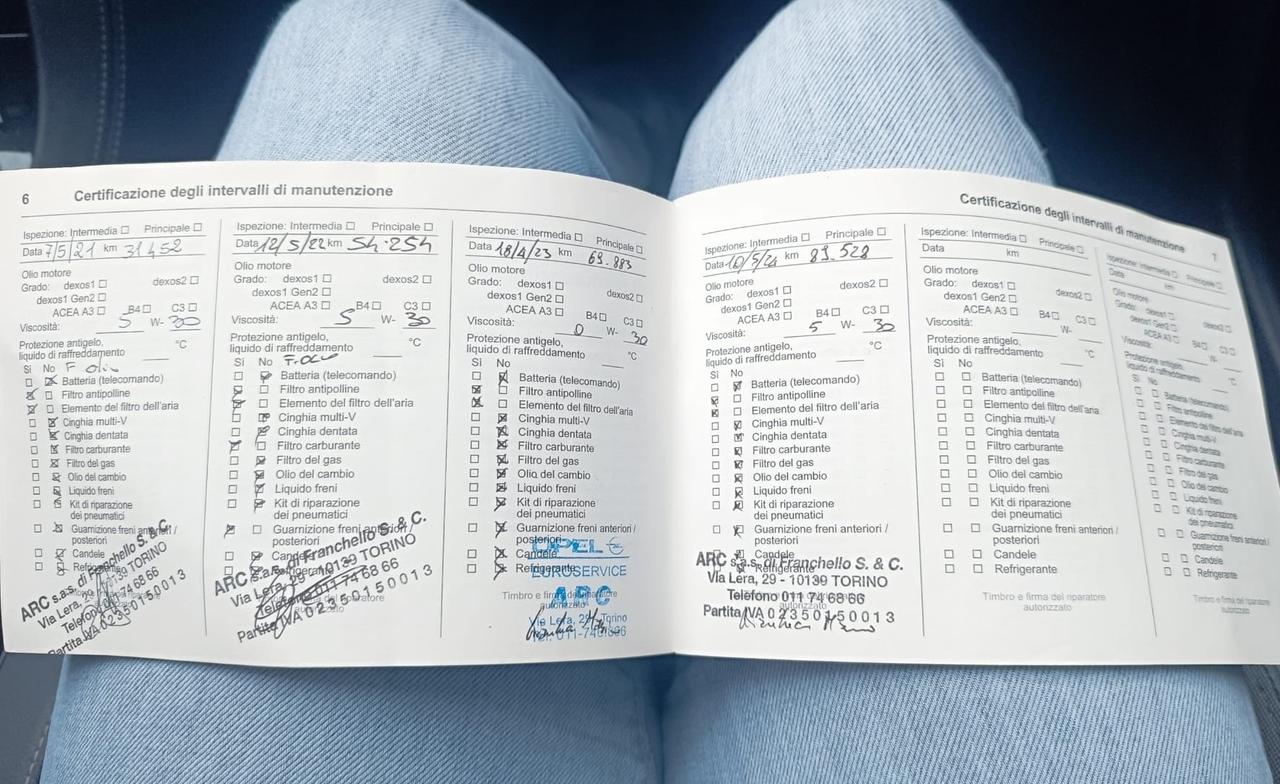 6 Certificazione degli intervalli di manutenzione
Ispezione: Intermedia ☐ Principale ☐
Data 7/5/21 km 31452
Olio motore
Grado: dexos1 ☐ dexos2 ☐
dexos1 Gen2 ☐
ACEA A3 ☐ B4 ☐ C3 ☐
Viscosità: 5 W- 30
Protezione antigelo,
liquido di raffreddamento °C
Sì No F
Batteria (telecomando)
Filtro antipolline
Elemento del filtro dell'aria
Cinghia multi-V
Cinghia dentata
Filtro carburante
Filtro del gas
Olio del cambio
Liquido freni
Kit di riparazione
dei pneumatici
Guarnizione freni anteriori /
posteriori
Candele
Refrigerante
ARC s.a.s. di Franchello S. & C.
Via Lera, 29 - 10139 TORINO
Telefono 011 74 68 66
Partita IVA 02350150013
Ispezione: Intermedia ☐ Principale ☐
Data 12/5/22 km 54.254
Olio motore
Grado: dexos1 ☐ dexos2 ☐
dexos1 Gen2 ☐
ACEA A3 ☐ B4 ☐ C3 ☐
Viscosità: 5 W- 30
Protezione antigelo,
liquido di raffreddamento °C
Sì No
Batteria (telecomando)
Filtro antipolline
Elemento del filtro dell'aria
Cinghia multi-V
Cinghia dentata
Filtro carburante
Filtro del gas
Olio del cambio
Liquido freni
Kit di riparazione
dei pneumatici
Guarnizione freni anteriori /
posteriori
Candele
Refrigerante
ARC s.a.s. di Franchello S. & C.
Via Lera, 29 - 10139 TORINO
Telefono 011 74 68 66
Partita IVA 02350150013
Ispezione: Intermedia ☐ Principale ☐
Data 18/4/23 km 69.883
Olio motore
Grado: dexos1 ☐ dexos2 ☐
dexos1 Gen2 ☐
ACEA A3 ☐ B4 ☐ C3 ☐
Viscosità: 0 W- 30
Protezione antigelo,
liquido di raffreddamento °C
Sì No
Batteria (telecomando)
Filtro antipolline
Elemento del filtro dell'aria
Cinghia multi-V
Cinghia dentata
Filtro carburante
Filtro del gas
Olio del cambio
Liquido freni
Kit di riparazione
dei pneumatici
Guarnizione freni anteriori /
posteriori
Candele
Refrigerante
OPEL
EUROSERVICE
Timbro e firma del riparatore
autorizzato
ARC
Via Lera, 29 - Torino
Tel. 011-746866
Certificazione degli intervalli di manutenzione 7
Ispezione: Intermedia ☐ Principale ☐
Data 10/5/24 km 89.528
Olio motore
Grado: dexos1 ☐ dexos2 ☐
dexos1 Gen2 ☐
ACEA A3 ☐ B4 ☐ C3 ☐
Viscosità: 5 W- 30
Protezione antigelo,
liquido di raffreddamento °C
Sì No
Batteria (telecomando)
Filtro antipolline
Elemento del filtro dell'aria
Cinghia multi-V
Cinghia dentata
Filtro carburante
Filtro del gas
Olio del cambio
Liquido freni
Kit di riparazione
dei pneumatici
Guarnizione freni anteriori /
posteriori
Candele
Refrigerante
ARC s.a.s. di Franchello S. & C.
Via Lera, 29 - 10139 TORINO
Telefono 011 74 68 66
Partita IVA 02350150013
Ispezione: Intermedia ☐ Principale ☐
Data km
Olio motore
Grado: dexos1 ☐ dexos2 ☐
dexos1 Gen2 ☐
ACEA A3 ☐ B4 ☐ C3 ☐
Viscosità: W-
Protezione antigelo,
liquido di raffreddamento °C
Sì No
☐ ☐ Batteria (telecomando)
☐ ☐ Filtro antipolline
☐ ☐ Elemento del filtro dell'aria
☐ ☐ Cinghia multi-V
☐ ☐ Cinghia dentata
☐ ☐ Filtro carburante
☐ ☐ Filtro del gas
☐ ☐ Olio del cambio
☐ ☐ Liquido freni
☐ ☐ Kit di riparazione
dei pneumatici
☐ ☐ Guarnizione freni anteriori /
posteriori
☐ ☐ Candele
☐ ☐ Refrigerante
Timbro e firma del riparatore
autorizzato
Ispezione: Intermedia ☐ Principale ☐
Data km
Olio motore
Grado: dexos1 ☐ dexos2 ☐
dexos1 Gen2 ☐
ACEA A3 ☐ B4 ☐ C3 ☐
Viscosità: W-
Protezione antigelo,
liquido di raffreddamento °C
Sì No
☐ ☐ Batteria (telecomando)
☐ ☐ Filtro antipolline
☐ ☐ Elemento del filtro dell'aria
☐ ☐ Cinghia multi-V
☐ ☐ Cinghia dentata
☐ ☐ Filtro carburante
☐ ☐ Filtro del gas
☐ ☐ Olio del cambio
☐ ☐ Liquido freni
☐ ☐ Kit di riparazione
dei pneumatici
☐ ☐ Guarnizione freni anteriori /
posteriori
☐ ☐ Candele
☐ ☐ Refrigerante
Timbro e firma del riparatore
autorizzato